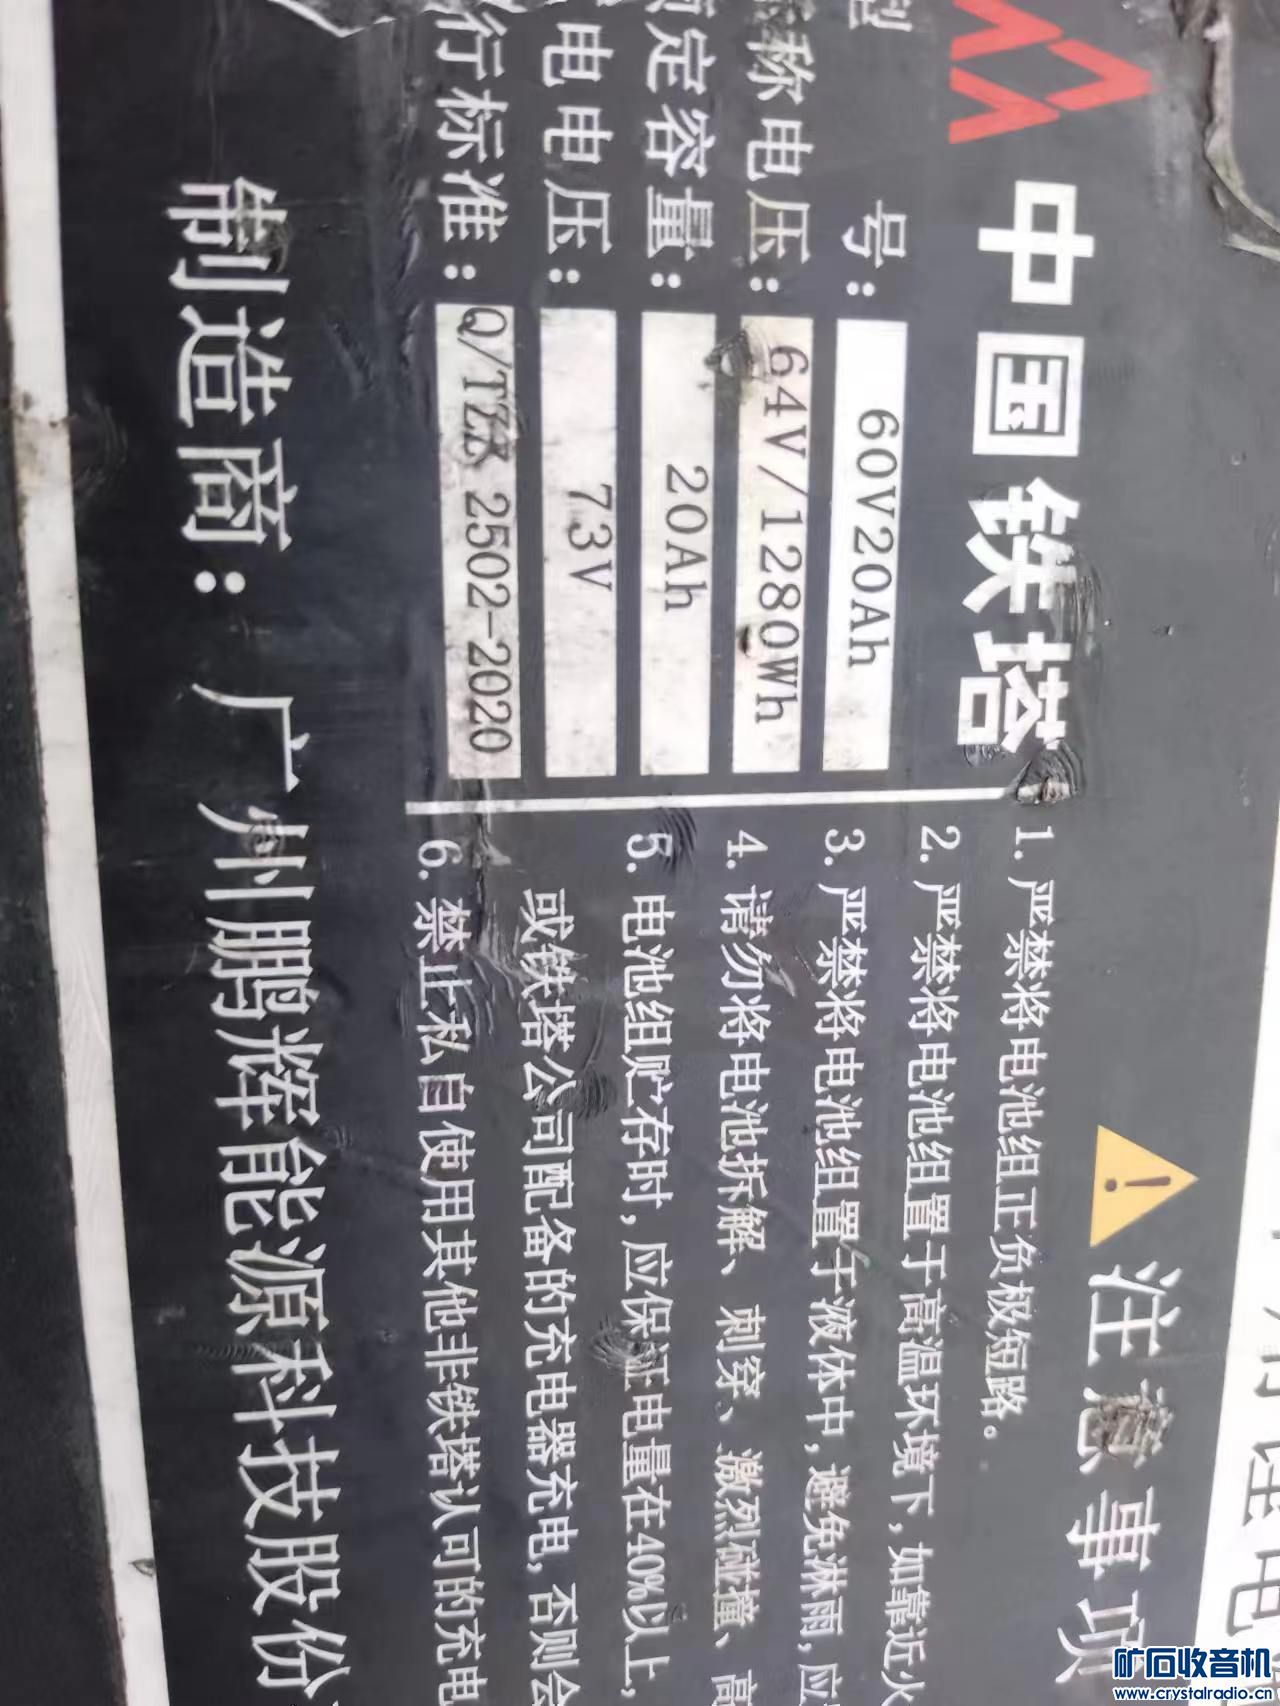 中国铁塔
号：60V20Ah
称电压：64V/1280Wh
定容量：20Ah
电电压：73V
行标准：Q/TZX 2502-2020
注意事项
1. 严禁将电池组正负极短路。
2. 严禁将电池组置于高温环境下，如靠近火
3. 严禁将电池组置于液体中，避免淋雨，应
4. 请勿将电池拆解、刺穿、激烈碰撞、高
5. 电池组贮存时，应保证电量在40%以上，
或铁塔公司配备的充电器充电，否则会
6. 禁止私自使用其他非铁塔认可的充电
制造商：广州鹏辉能源科技股份
矿石收音机
www.crystalradio.cn